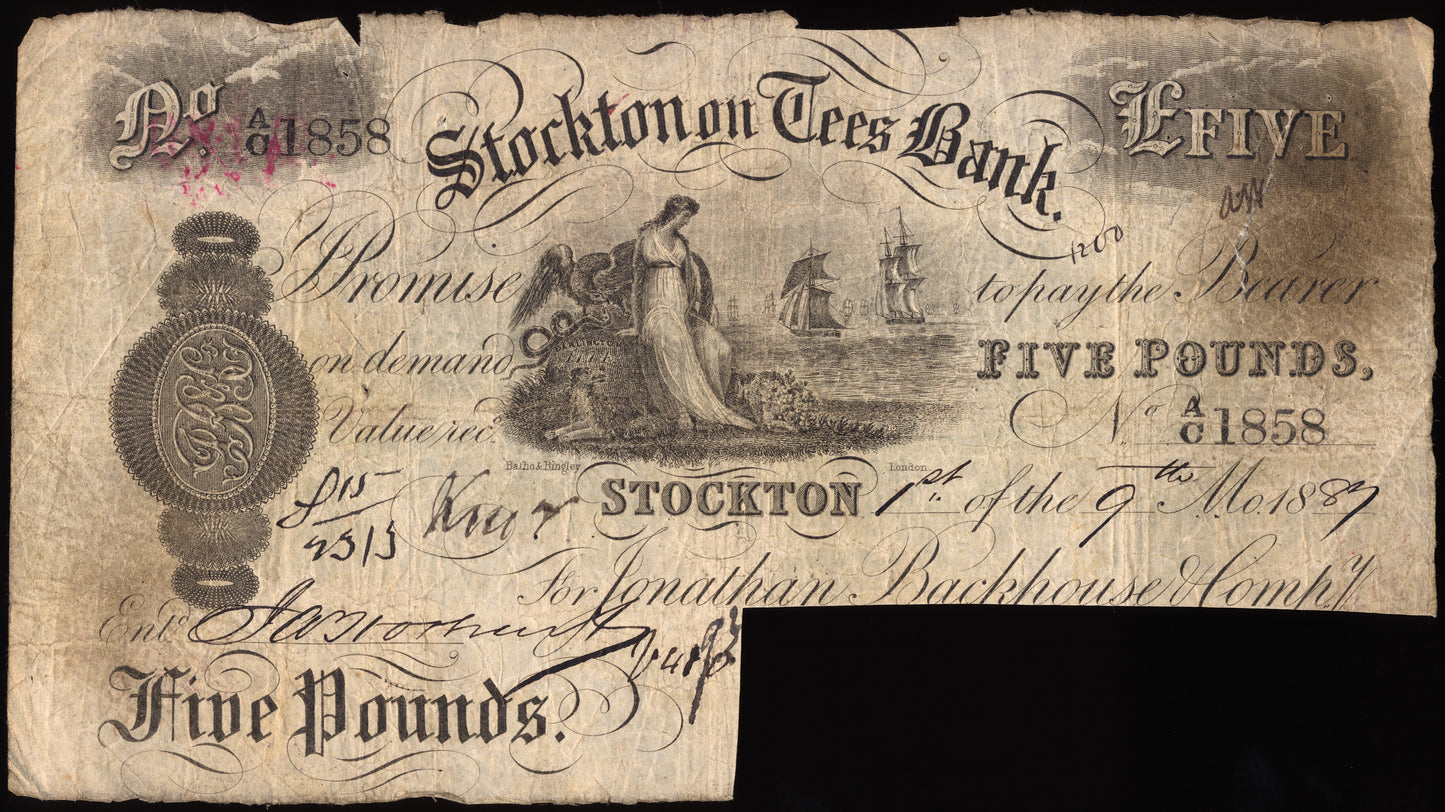 No. A/C 1858
Stockton on Tees Bank.
£FIVE
1200
I Promise to pay the Bearer
on demand, FIVE POUNDS,
Value rec.d No A/C 1858
Batho & Bingley London.
STOCKTON 1st of the 9th Mo. 1887
For Jonathan Backhouse & Comp.y
Ent.d
Five Pounds.